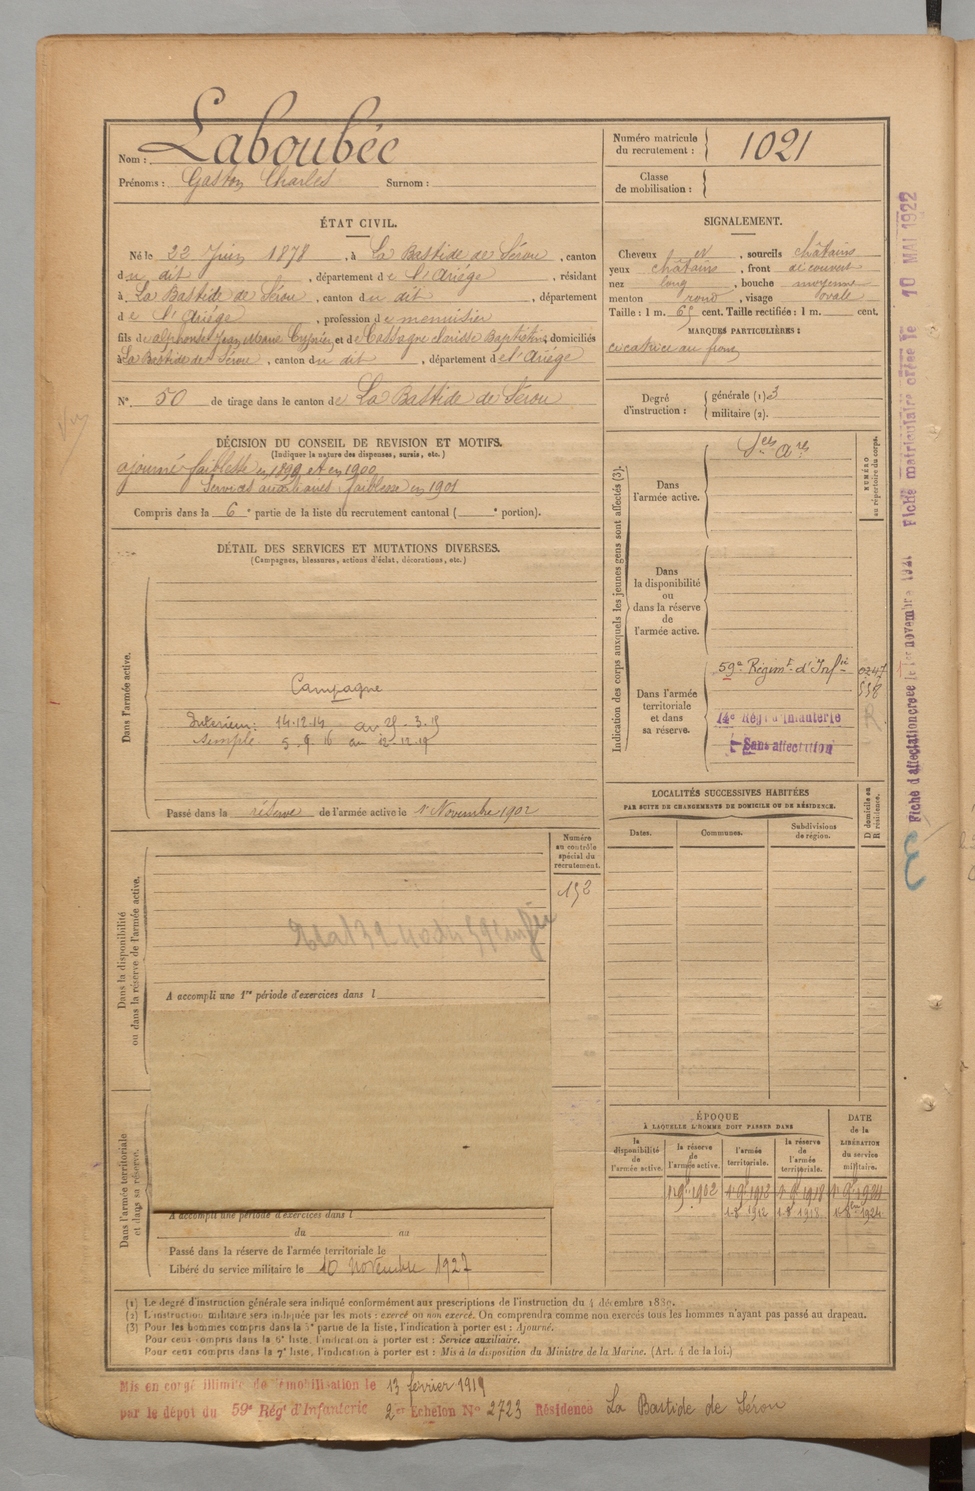 Nom : Laboubée
Prénoms : Gaston Charles Surnom :
Numéro matricule du recrutement : 1021
Classe de mobilisation :
ÉTAT CIVIL.
Né le 22 Juin 1878, à La Bastide de Sérou, canton
du dit, département de l'Ariége, résidant
à La Bastide de Sérou, canton du dit, département
de l'Ariége, profession de menuisier
fils de alphonse Jean et de Cassagne domiciliés
à La Bastide de Sérou, canton du dit, département de l'Ariége
N° 50 de tirage dans le canton de La Bastide de Sérou
SIGNALEMENT.
Cheveux et, sourcils châtains
yeux châtains, front découvert
nez long, bouche moyenne
menton rond, visage ovale
Taille : 1 m. 65 cent. Taille rectifiée : 1 m. cent.
MARQUES PARTICULIÈRES :
cicatrice au front
Degré d'instruction : générale (1) 3
militaire (2).
DÉCISION DU CONSEIL DE REVISION ET MOTIFS.
(Indiquer la nature des dispenses, sursis, etc.)
ajourné faiblesse en 1899 et en 1900
Services auxiliaires : faiblesse en 1901
Compris dans la 6e partie de la liste du recrutement cantonal ( e portion).
DÉTAIL DES SERVICES ET MUTATIONS DIVERSES.
(Campagnes, blessures, actions d'éclat, décorations, etc.)
Dans l'armée active.
Campagne
Intérieur : 14-12-14 au 28-3-15
simple 5-9-16 au 12-12-18
Passé dans la réserve de l'armée active le 1er Novembre 1902
Indication des corps auxquels les jeunes gens sont affectés (3).
NUMÉRO au répertoire du corps.
Dans l'armée active.
Dans la disponibilité ou dans la réserve de l'armée active.
Dans l'armée territoriale et dans sa réserve.
59e Régimt d'Infrie
14e Régt d'Infanterie
Sans affectation
LOCALITÉS SUCCESSIVES HABITÉES
PAR SUITE DE CHANGEMENTS DE DOMICILE OU DE RÉSIDENCE.
D domicile ou R résidence.
Dates. Communes. Subdivisions de région.
Dans la disponibilité ou dans la réserve de l'armée active.
Numéro au contrôle spécial du recrutement.
152
A accompli une 1re période d'exercices dans l
Dans l'armée territoriale et dans sa réserve.
A accompli une période d'exercices dans l
du au
Passé dans la réserve de l'armée territoriale le
Libéré du service militaire le 10 novembre 1927
ÉPOQUE
À LAQUELLE L'HOMME DOIT PASSER DANS
la disponibilité de l'armée active.
la réserve de l'armée active.
l'armée territoriale.
la réserve de l'armée territoriale.
DATE de la LIBÉRATION du service militaire.
(1) Le degré d'instruction générale sera indiqué conformément aux prescriptions de l'instruction du 4 décembre 1889.
(2) L'instruction militaire sera indiquée par les mots : exercé ou non exercé. On comprendra comme non exercés tous les hommes n'ayant pas passé au drapeau.
(3) Pour les hommes compris dans la 5e partie de la liste, l'indication à porter est : Ajourné.
Pour ceux compris dans la 6e liste, l'indication à porter est : Service auxiliaire.
Pour ceux compris dans la 7e liste, l'indication à porter est : Mis à la disposition du Ministre de la Marine. (Art. 4 de la loi.)
Mis en congé illimité de démobilisation le 13 février 1919
par le dépot du 59e Régt d'Infanterie 2er Echelon N° 2723 Résidence La Bastide de Sérou
Fiche matriculaire créée le 10 MAI 1922